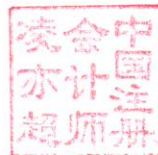 中国注册
会计师
亦超